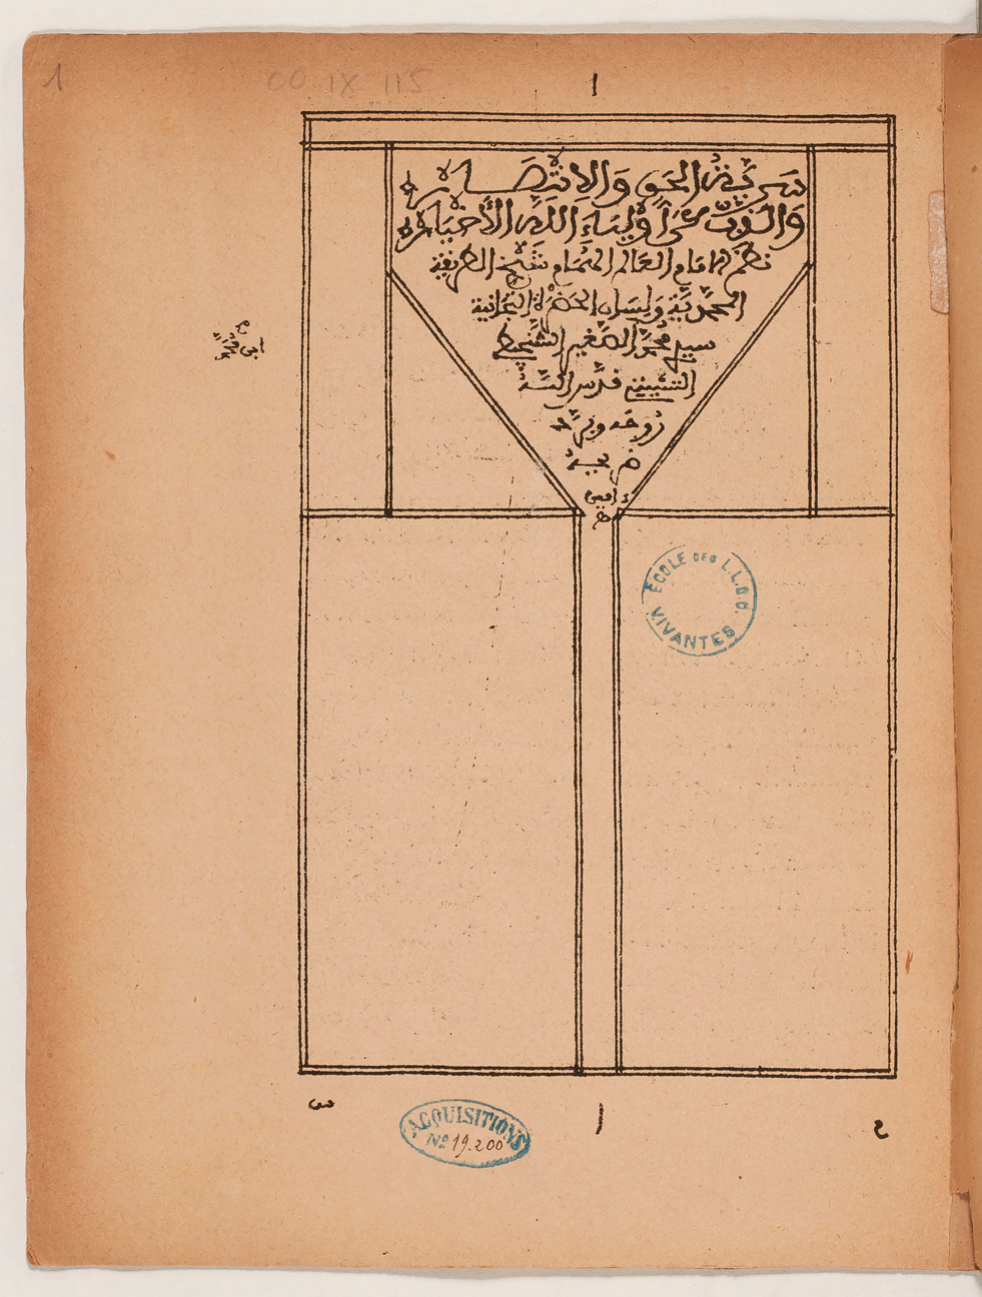 1
00 IX 115
1
سرية الحق والانتصار
والذب عن أولياء الله الأخيار
نظم الامام العالم الهمام شيخ الطريقة
المحمدية ولسان الحضرة التجانية
سيدي محمد الصغير الشنجيطي
التشيتي قدس الله
روحه وبرد
ضريحه
ءامين
ه
ÉCOLE DES L.L.O.O. VIVANTES
ACQUISITIONS
No 19.200